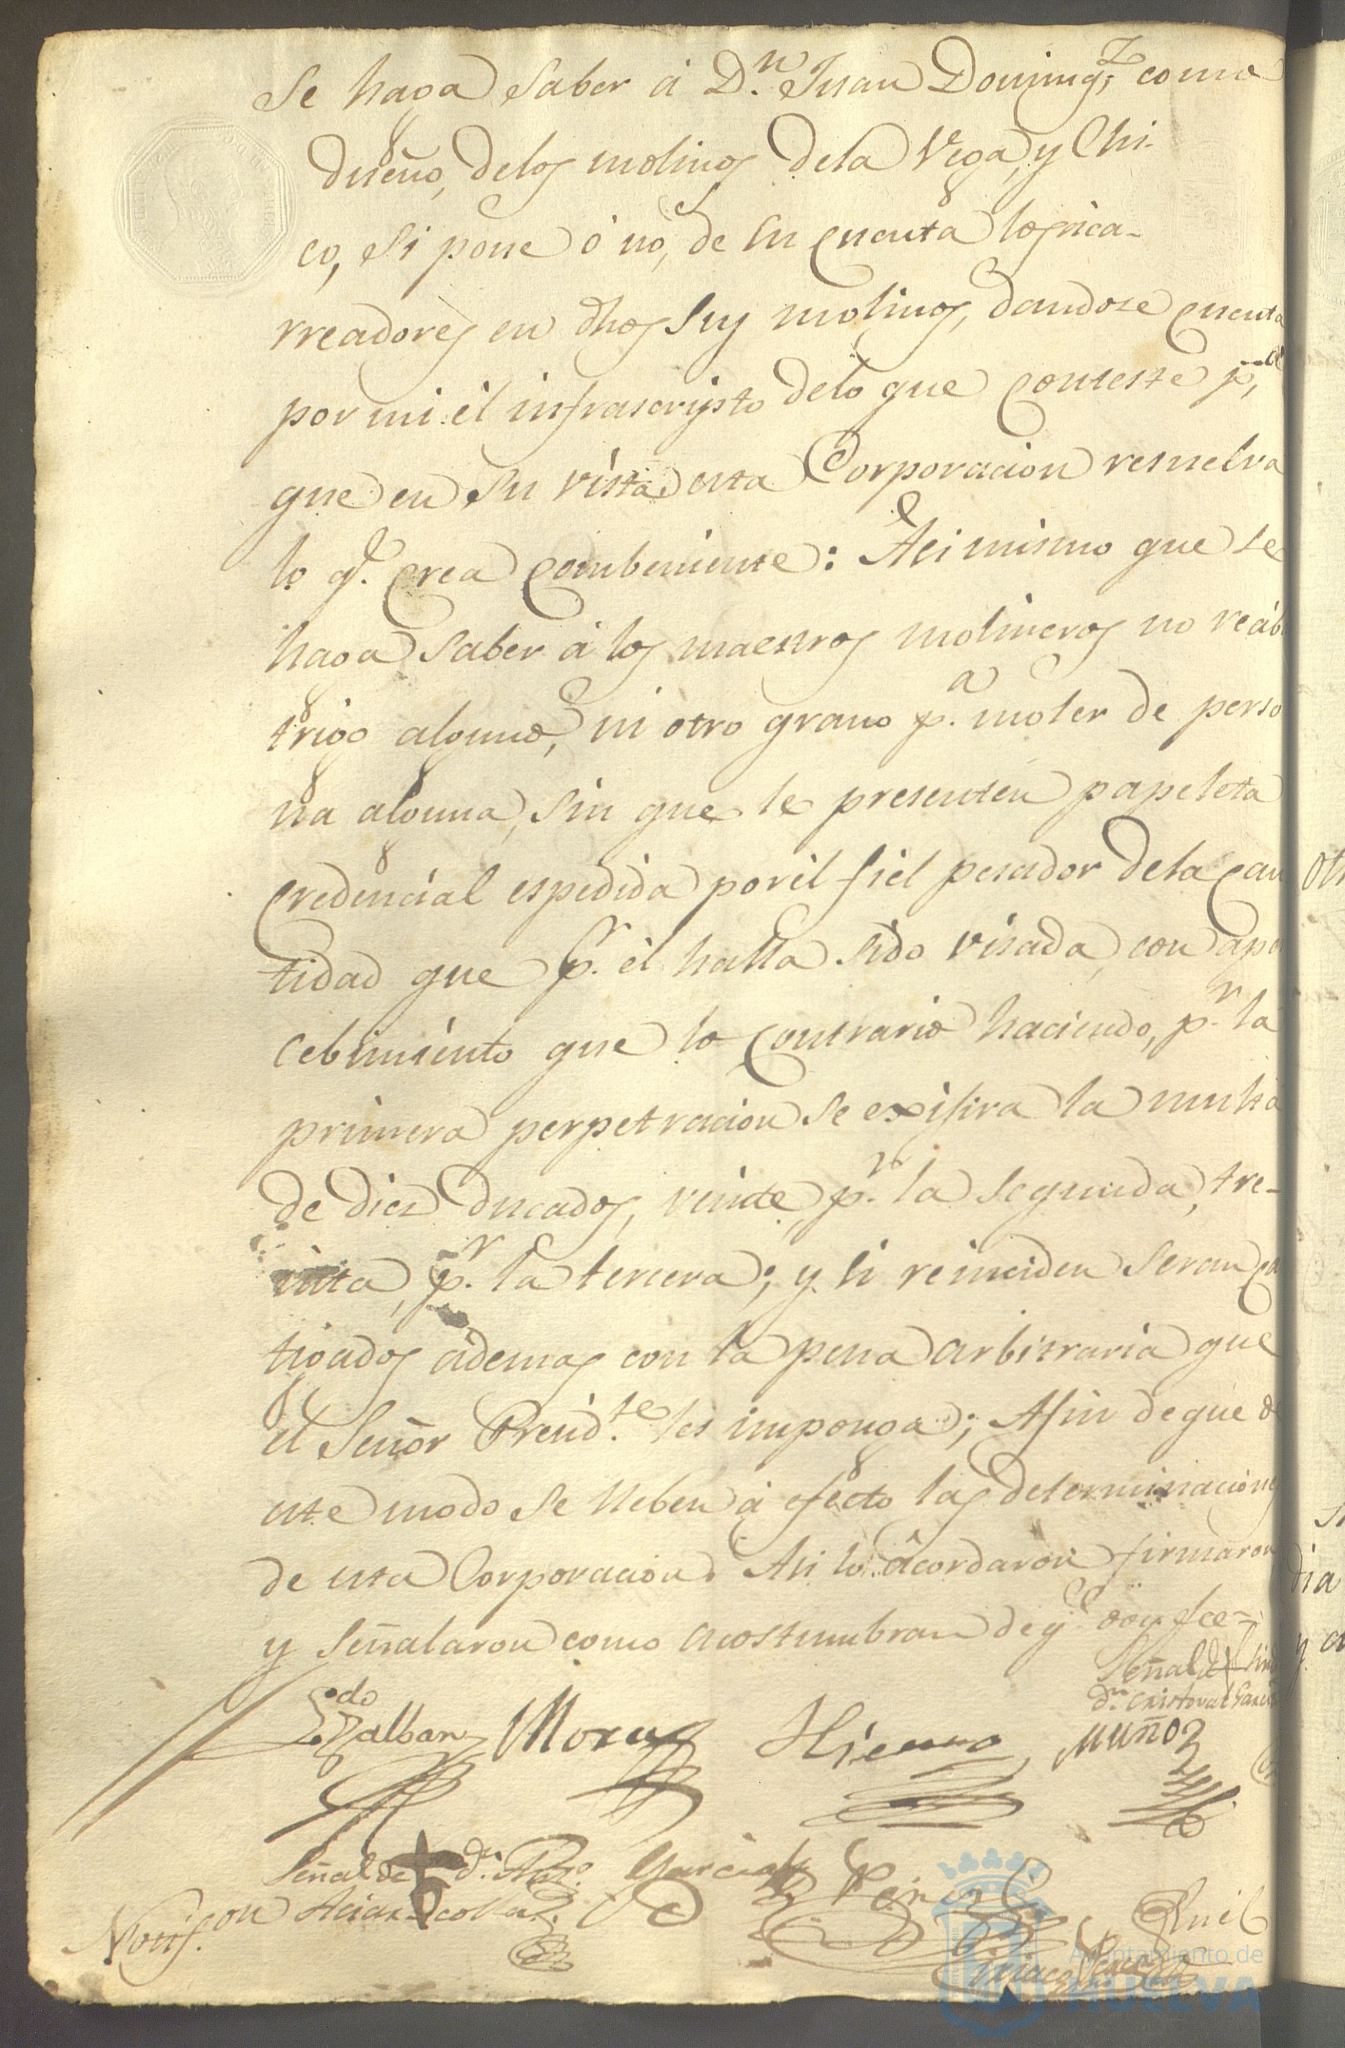 Se haga saber á D.n Juan Doming.z como
dueño, delos molinos dela Vega, y Chi-
co, si pone ó no, de su cuenta los rica-
rreadores en dhos sus molinos, dandose cuenta
por mi el infrascripto delo que conteste p.a
que en su vista esta Corporacion resuelva
lo q.e crea combeniente: Asi mismo que se
haga saber á los maestros molineros no reciban
trigo alguno, ni otro grano p.a moler de perso
na alguna, sin que le presenten papeleta
credencial espedida por el fiel pesador dela can
tidad que p.r el halla sido visada, con aper
cebimiento que lo contrario haciendo, p.r la
primera perpetracion se exijira la multa
de diez ducados, veinte p.r la segunda, tre-
inta, p.r la tercera; y si reinciden seran cas
tigados ademas con la pena arbitraria que
el Señor Presid.te les imponga; Afin deque de
este modo se lleben á efecto las determinaciones
de esta Corporacion. Asi lo acordaron firmaron
y señalaron como acostumbran de q.e doy fee=
Señal de + Sind
d.n Cristoval Garcia
L.do Balban Mora Hierro Muñoz
Señal de + d.n Garcia Perez
con
Notif.
Ayuntamiento de
HUELVA